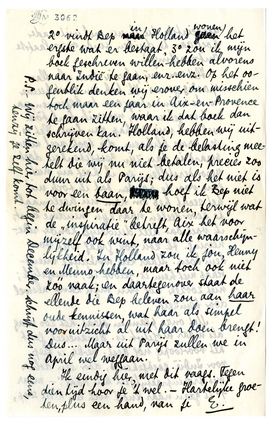 3052
2º vindt Bep in Holland wonen het
ergste wat er bestaat, 3º zou ik mijn
boek geschreven willen hebben alvorens
naar Indië te gaan, enz. enz. Op het oo-
genblik denken wij erover, om misschien
toch maar een jaar in Aix-en-Provence
te gaan zitten, waar ik dat boek dan
schrijven kan. Holland, hebben wij uit-
gerekend, komt, als je de belasting mee-
telt die wij nu niet betalen, precies zoo
duur uit als Parijs; dus als het niet is
voor een baan, hoef ik Bep niet
te dwingen daar te wonen, terwijl wat
de „inspiratie" betreft, Aix het voor
mijzelf ook wint, naar alle waarschijn-
lijkheid. In Holland zou ik jou, Henny
en Menno hebben, maar toch ook niet
zoo vaak; en daartegenover staat de
ellende die Bep beleven zou aan haar
oude kennissen, wat haar als simpel
vooruitzicht al uit haar doen brengt!
Dus... Maar uit Parijs zullen we in
April wel weggaan.
Ik eindig hier, met dit vaags. Tegen
dien tijd hoor je 't wel. — Hartelijke groe-
ten, plus een hand, van je E.
P.P. Wij zitten hier tot begin December, schrijf dus nog eens,
tenzij je zelf komt.